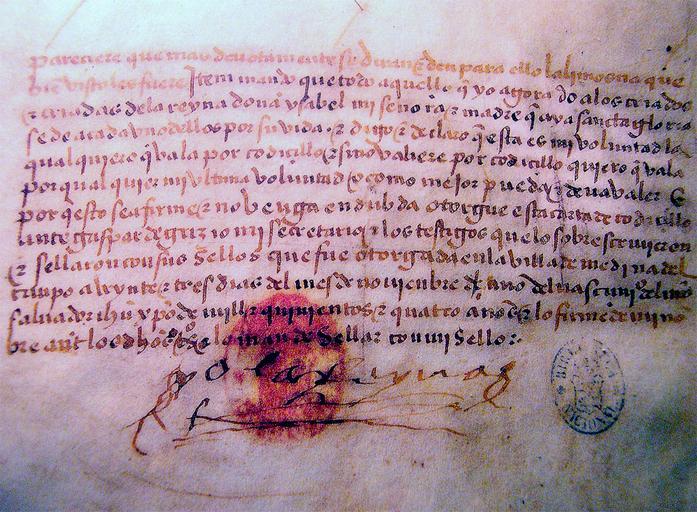 pareciere que mas devotamente se diran ⁊ den para ello la limosna que
bie visto les fuere Item mando que todo aquello q̄ yo agora do a los criados
⁊ criadas de la reyna doña ysabel mi señora ⁊ madre q̄ aya sancta gloria
se de a cada vno dellos por su vida. ⁊ digo ⁊ declaro q̄ esta es mi voluntad la
qual quiero q̄ vala por codicillo ⁊ si no valiere por codicillo quiero q̄ vala
por qual quier mi vltima voluntad ⁊ como mejor pueda ⁊ deua valer E
por q̄ esto sea firme ⁊ no benga en dubda otorgue esta carta de codicillo
ante gaspar de grizio mi secretario ⁊ los testigos que lo sobrescriuieron
⁊ sellaron con sus sellos que fue otorgada en la villa de medina del
campo a veynte ⁊ tres dias del mes de nouienbre del año del nascimi͞o del n͞ro
saluador ih͞u xp͞o de mill ⁊ quinientos ⁊ quatro años ⁊ lo firme de mi no
bre ant los dh͞os ⁊ lo mande sellar con mi sello:
yo la Reyna